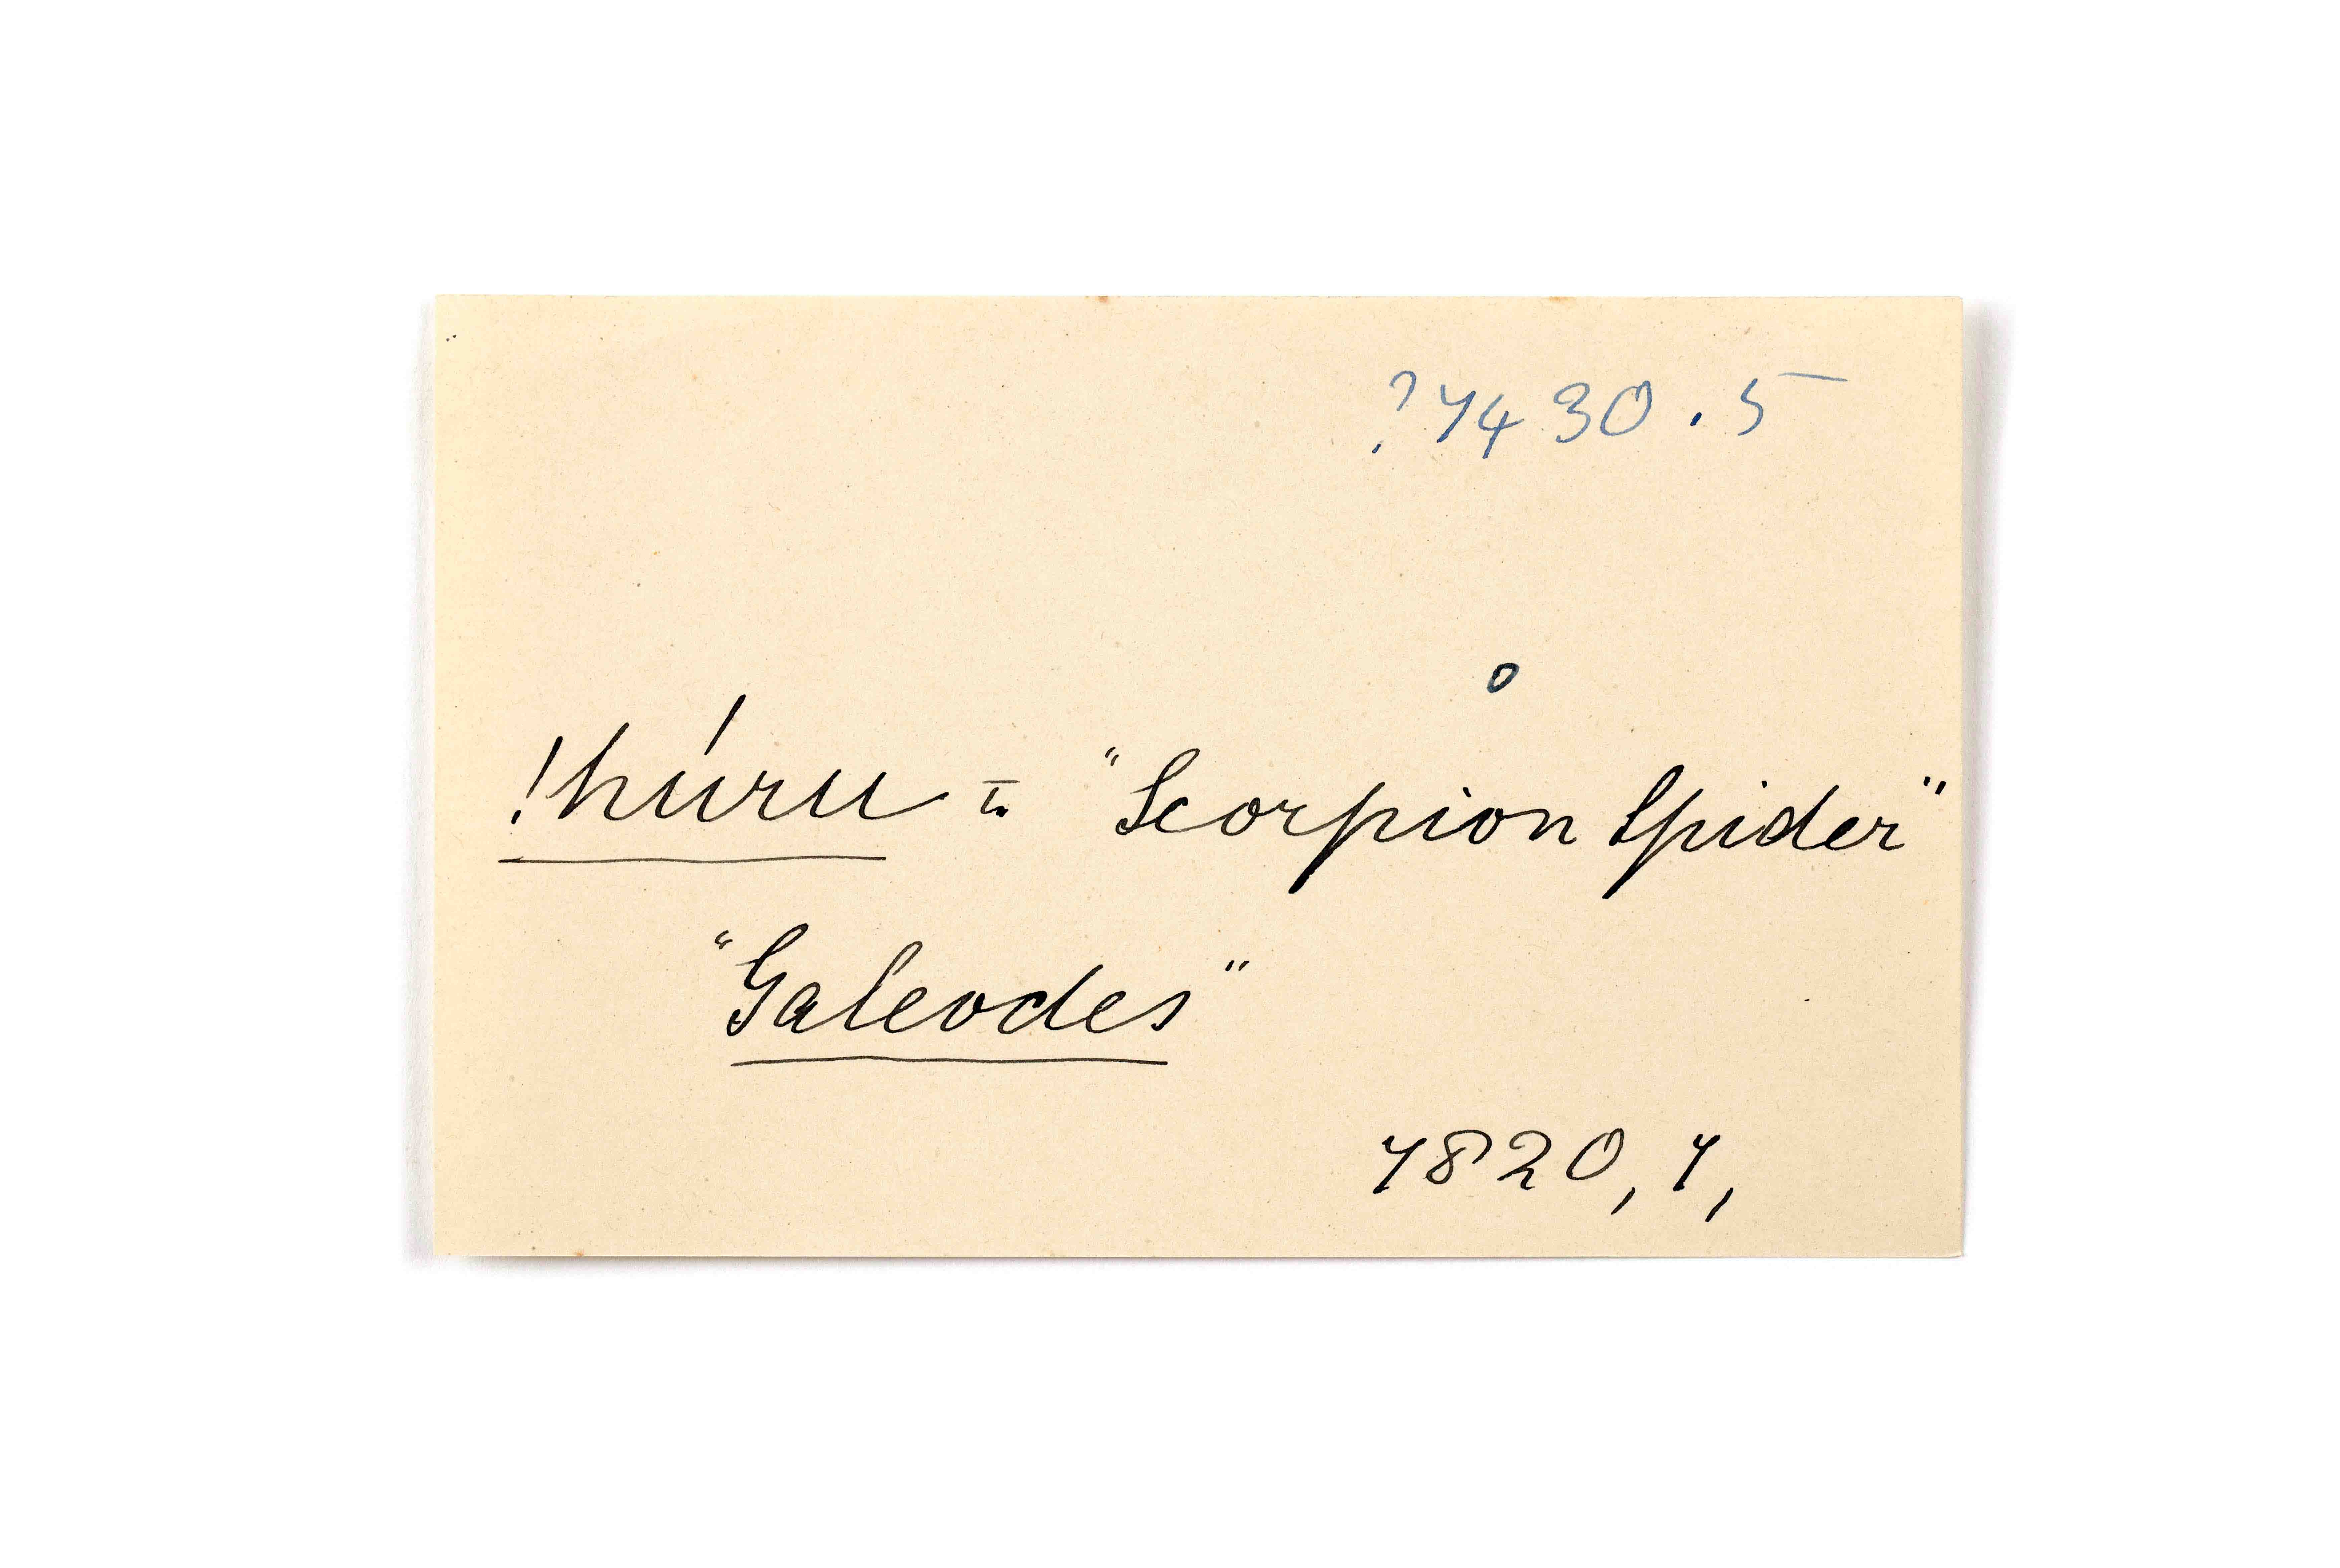 ?7430.5
!húru = "Scorpion Spider"
"Galeodes"
7820,7,